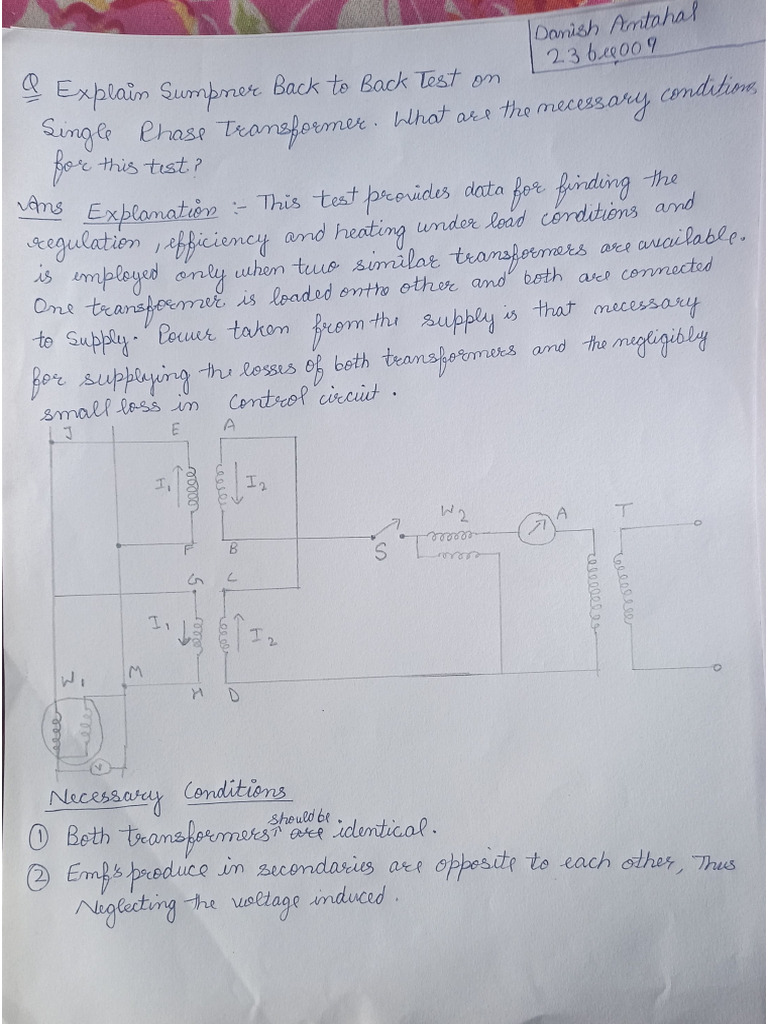 Danish Amtahal
23bee009
Q Explain Sumpner Back to Back Test on
Single Phase Transformer. What are the necessary conditions
for this test?
Ans Explanation :- This test provides data for finding the
regulation, efficiency and heating under load conditions and
is employed only when two similar transformers are available.
One transformer is loaded ontho other and both are connected
to Supply. Power taken from the supply is that necessary
for supplying the losses of both transformers and the negligibly
small loss in control circuit.
J E A
I1 I2
W2 A T
F B S
G C
I1 I2
W1 M
H D
V
Necessary Conditions
① Both transformers should be are identical.
② Emf's produce in secondaries are opposite to each other, Thus
Neglecting the voltage induced.